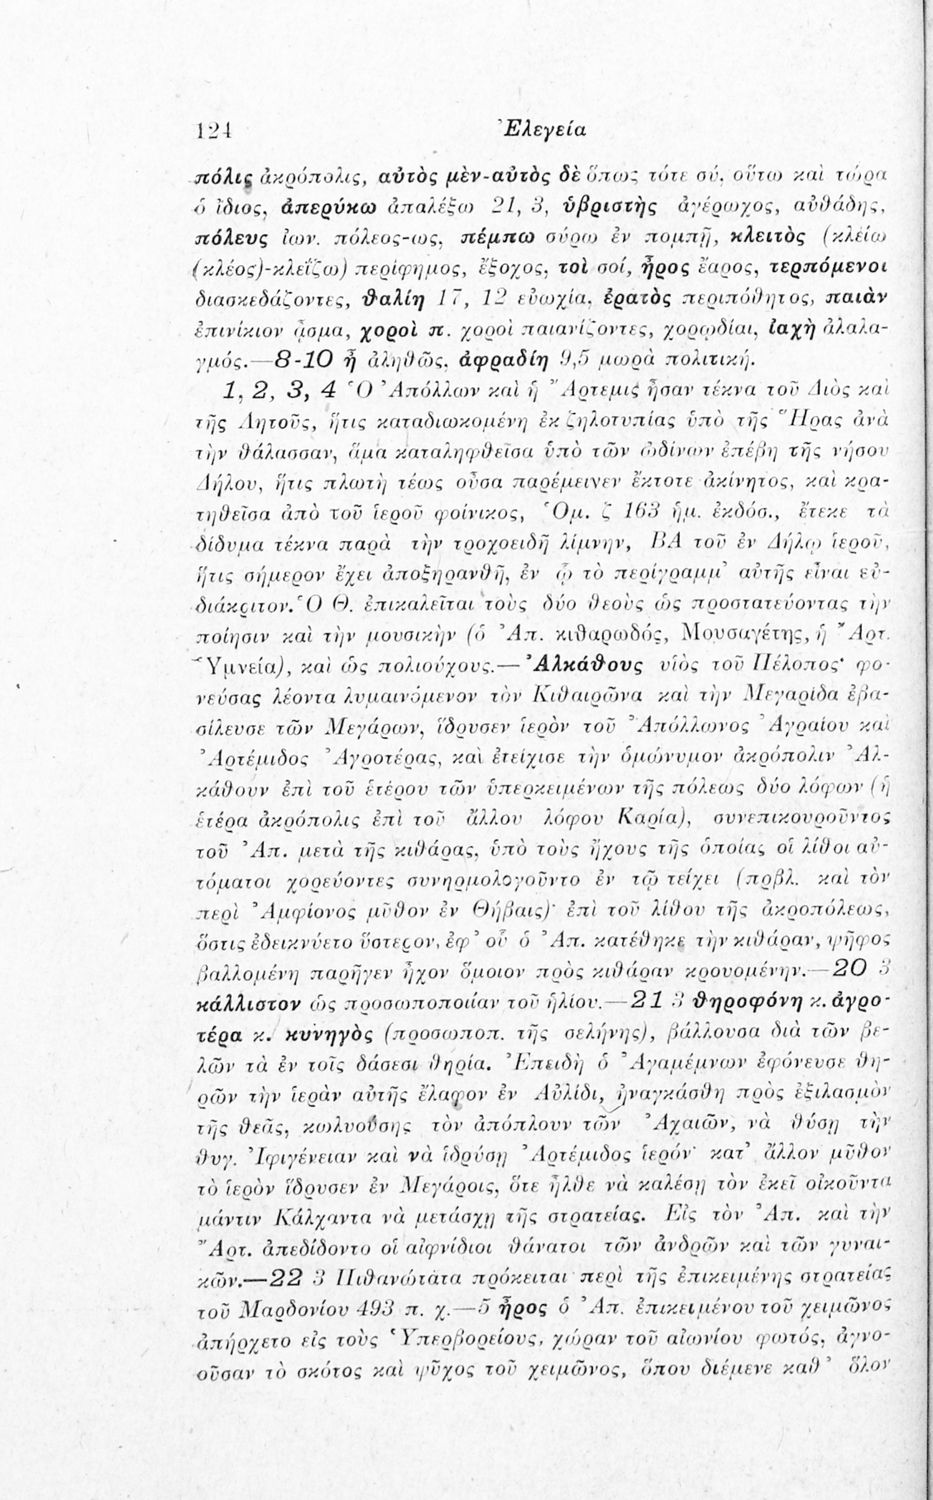 124 Ἐλεγεία
πόλις ἀκρόπολις, αὐτὸς μὲν-αὐτὸς δὲ ὅπως τότε σύ, οὕτω καὶ τώρα
ὁ ἴδιος, ἀπερύκω ἀπαλέξω 21, 3, ὑβριστὴς ἀγέρωχος, αὐθάδης,
πόλευς ἰων. πόλεος-ως, πέμπω σύρω ἐν πομπῇ, κλειτὸς (κλείω
(κλέος)-κλεΐζω) περίφημος, ἔξοχος, τοὶ σοί, ἦρος ἔαρος, τερπόμενοι
διασκεδάζοντες, θαλίη 17, 12 εὐωχία, ἐρατὸς περιπόθητος, παιὰν
ἐπινίκιον ᾆσμα, χοροὶ π. χοροὶ παιανίζοντες, χορῳδίαι, ἰαχὴ ἀλαλα-
γμός.—8-10 ἦ ἀληθῶς, ἀφραδίη 9,5 μωρὰ πολιτική.
1, 2, 3, 4 Ὁ Ἀπόλλων καὶ ἡ Ἄρτεμις ἦσαν τέκνα τοῦ Διὸς καὶ
τῆς Λητοῦς, ἥτις καταδιωκομένη ἐκ ζηλοτυπίας ὑπὸ τῆς Ἥρας ἀνὰ
τὴν θάλασσαν, ἅμα καταληφθεῖσα ὑπὸ τῶν ὠδίνων ἐπέβη τῆς νήσου
Δήλου, ἥτις πλωτὴ τέως οὖσα παρέμεινεν ἔκτοτε ἀκίνητος, καὶ κρα-
τηθεῖσα ἀπὸ τοῦ ἱεροῦ φοίνικος, Ὁμ. ζ 163 ἡμ. ἐκδόσ., ἔτεκε τὰ
δίδυμα τέκνα παρὰ τὴν τροχοειδῆ λίμνην, ΒΑ τοῦ ἐν Δήλῳ ἱεροῦ,
ἥτις σήμερον ἔχει ἀποξηρανθῆ, ἐν ᾧ τὸ περίγραμμ’ αὐτῆς εἶναι εὐ-
διάκριτον. Ὁ Θ. ἐπικαλεῖται τοὺς δύο θεοὺς ὡς προστατεύοντας τὴν
ποίησιν καὶ τὴν μουσικὴν (ὁ Ἀπ. κιθαρωδός, Μουσαγέτης, ἡ Ἄρτ.
Ὑμνεία), καὶ ὡς πολιούχους.—Ἀλκάθους υἱὸς τοῦ Πέλοπος· φο-
νεύσας λέοντα λυμαινόμενον τὸν Κιθαιρῶνα καὶ τὴν Μεγαρίδα ἐβα-
σίλευσε τῶν Μεγάρων, ἵδρυσεν ἱερὸν τοῦ Ἀπόλλωνος Ἀγραίου καὶ
Ἀρτέμιδος Ἀγροτέρας, καὶ ἐτείχισε τὴν ὁμώνυμον ἀκρόπολιν Ἀλ-
κάθουν ἐπὶ τοῦ ἑτέρου τῶν ὑπερκειμένων τῆς πόλεως δύο λόφων (ἡ
ἑτέρα ἀκρόπολις ἐπὶ τοῦ ἄλλου λόφου Καρία), συνεπικουροῦντος
τοῦ Ἀπ. μετὰ τῆς κιθάρας, ὑπὸ τοὺς ἤχους τῆς ὁποίας οἱ λίθοι αὐ-
τόματοι χορεύοντες συνηρμολογοῦντο ἐν τῷ τείχει (πρβλ. καὶ τὸν
περὶ Ἀμφίονος μῦθον ἐν Θήβαις)· ἐπὶ τοῦ λίθου τῆς ἀκροπόλεως,
ὅστις ἐδεικνύετο ὕστερον, ἐφ’ οὗ ὁ Ἀπ. κατέθηκε τὴν κιθάραν, ψῆφος
βαλλομένη παρῆγεν ἦχον ὅμοιον πρὸς κιθάραν κρουομένην.—20 3
κάλλιστον ὡς προσωποποιίαν τοῦ ἡλίου.—21 3 θηροφόνη κ. ἀγρο-
τέρα κ. κυνηγὸς (προσωποπ. τῆς σελήνης), βάλλουσα διὰ τῶν βε-
λῶν τὰ ἐν τοῖς δάσεσι θηρία. Ἐπειδὴ ὁ Ἀγαμέμνων ἐφόνευσε θη-
ρῶν τὴν ἱερὰν αὐτῆς ἔλαφον ἐν Αὐλίδι, ἠναγκάσθη πρὸς ἐξιλασμὸν
τῆς θεᾶς, κωλυούσης τὸν ἀπόπλουν τῶν Ἀχαιῶν, νὰ θύσῃ τὴν
θυγ. Ἰφιγένειαν καὶ νὰ ἱδρύσῃ Ἀρτέμιδος ἱερόν· κατ’ ἄλλον μῦθον
τὸ ἱερὸν ἵδρυσεν ἐν Μεγάροις, ὅτε ἦλθε νὰ καλέσῃ τὸν ἐκεῖ οἰκοῦντα
μάντιν Κάλχαντα νὰ μετάσχῃ τῆς στρατείας. Εἰς τὸν Ἀπ. καὶ τὴν
Ἄρτ. ἀπεδίδοντο οἱ αἰφνίδιοι θάνατοι τῶν ἀνδρῶν καὶ τῶν γυναι-
κῶν.—22 3 Πιθανώτατα πρόκειται περὶ τῆς ἐπικειμένης στρατείας
τοῦ Μαρδονίου 493 π. χ.—5 ἦρος ὁ Ἀπ. ἐπικειμένου τοῦ χειμῶνος
ἀπήρχετο εἰς τοὺς Ὑπερβορείους, χώραν τοῦ αἰωνίου φωτός, ἀγνο-
οῦσαν τὸ σκότος καὶ ψῦχος τοῦ χειμῶνος, ὅπου διέμενε καθ’ ὅλον